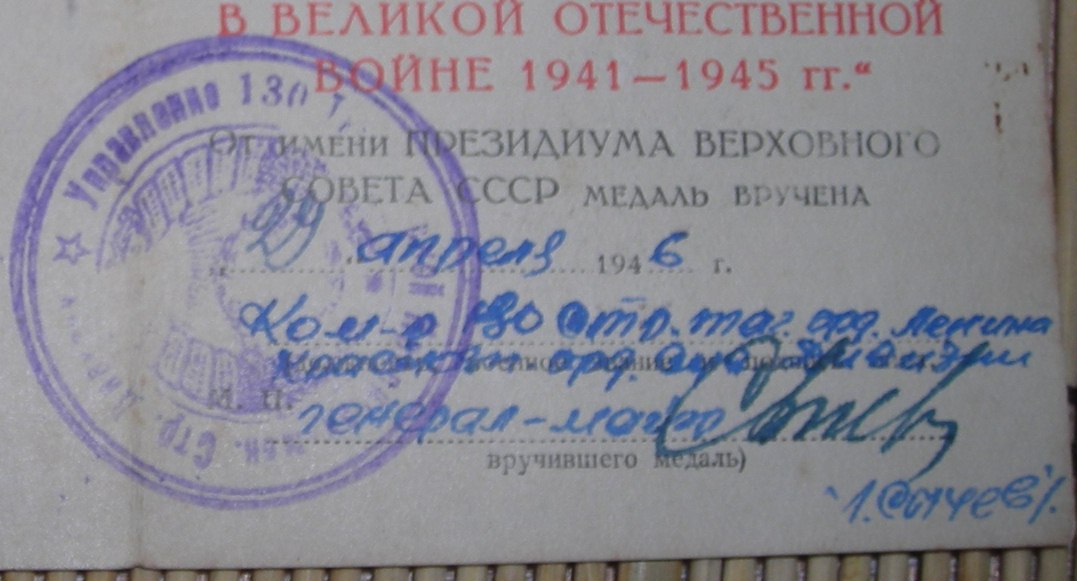 В ВЕЛИКОЙ ОТЕЧЕСТВЕННОЙ
ВОЙНЕ 1941—1945 гг.“
От имени ПРЕЗИДИУМА ВЕРХОВНОГО
СОВЕТА СССР МЕДАЛЬ ВРУЧЕНА
29 апреля 1946 г.
Ком-р 130 стр. таг. орд. Ленина
орд.
М. П. генерал-майор
вручившего медаль)
/.Сычев/.
Управление 130
Стр.